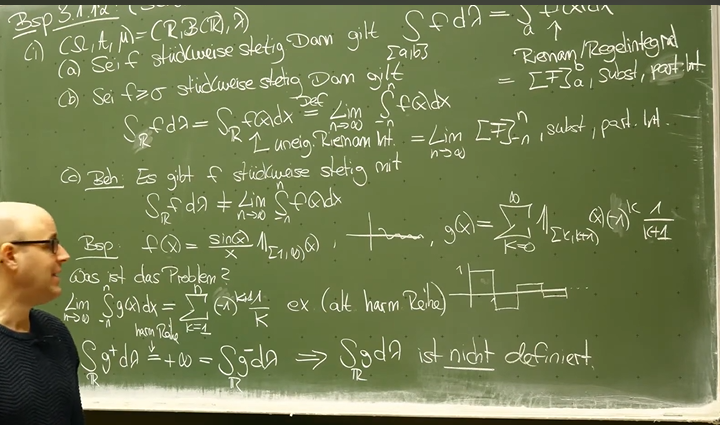 Bsp 3.1.12:
(i) (Ω, A, μ) = (ℝ, B(ℝ), λ)
(a) Sei f stückweise stetig Dann gilt ∫_[a,b] f dλ = ∫_a f(x)dx
↑ Riemann/Regelintegral
= [F]_a^b, subst, part. Int
(b) Sei f ≥ 0 stückweise stetig Dann gilt
∫_ℝ f dλ = ∫_ℝ f(x)dx =^Def Lim_{n→∞} ∫_{-n}^n f(x)dx
↑ uneig. Rieman Int. = Lim_{n→∞} [F]_{-n}^n, subst, part. Int.
(c) Beh: Es gibt f stückweise stetig mit
∫_ℝ f dλ ≠ Lim_{n→∞} ∫_{-n}^n f(x)dx
Bsp: f(x) = sin(x)/x 𝟙_[1,∞)(x), , g(x) = ∑_{k=0}^∞ 𝟙_[k,k+1)(x) (-1)^k 1/(k+1)
Was ist das Problem?
1
Lim_{n→∞} ∫_{-n}^n g(x)dx = ∑_{k=1}^n (-1)^{k+1} 1/k ex (alt harm Reihe)
harm Reihe
∫_ℝ g⁺ dλ = +∞ = ∫_ℝ g⁻ dλ ⟹ ∫_ℝ g dλ ist nicht definiert.